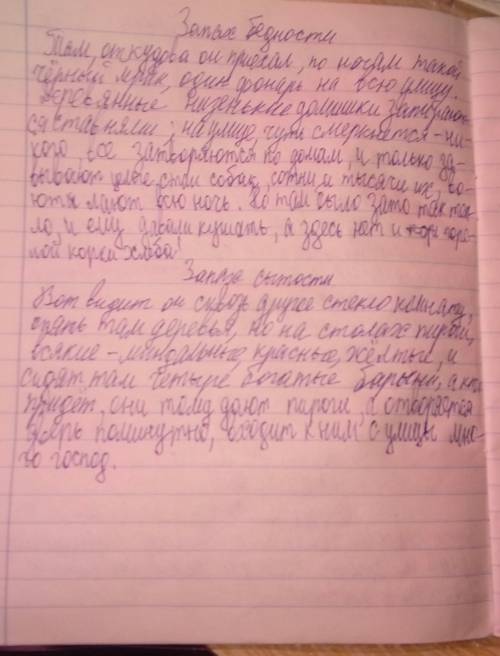 Запах бедности
Там, откудова он приехал, по ночам такой
чёрный мрак, один фонарь на всю улицу.
Деревянные низенькие домишки запирают
ся ставнями; на улице, чуть смеркнется - ни-
кого, все затворяются по домам, и только за-
вывают целые стаи собак, сотни и тысячи их, во-
ют и лают всю ночь. Но там было зато так теп
ло, и ему давали кушать, а здесь нет и
лой корки хлеба!
Запах сытости
Вот видит он сквозь другое стекло комнату,
опять там деревья, но на столах пироги,
всякие - миндальные, красные, жёлтые, и
сидят там четыре богатые барыни, а кто
придёт, они тому дают пироги, а отворяется
дверь поминутно, входит к ним с улицы мно-
го господ.